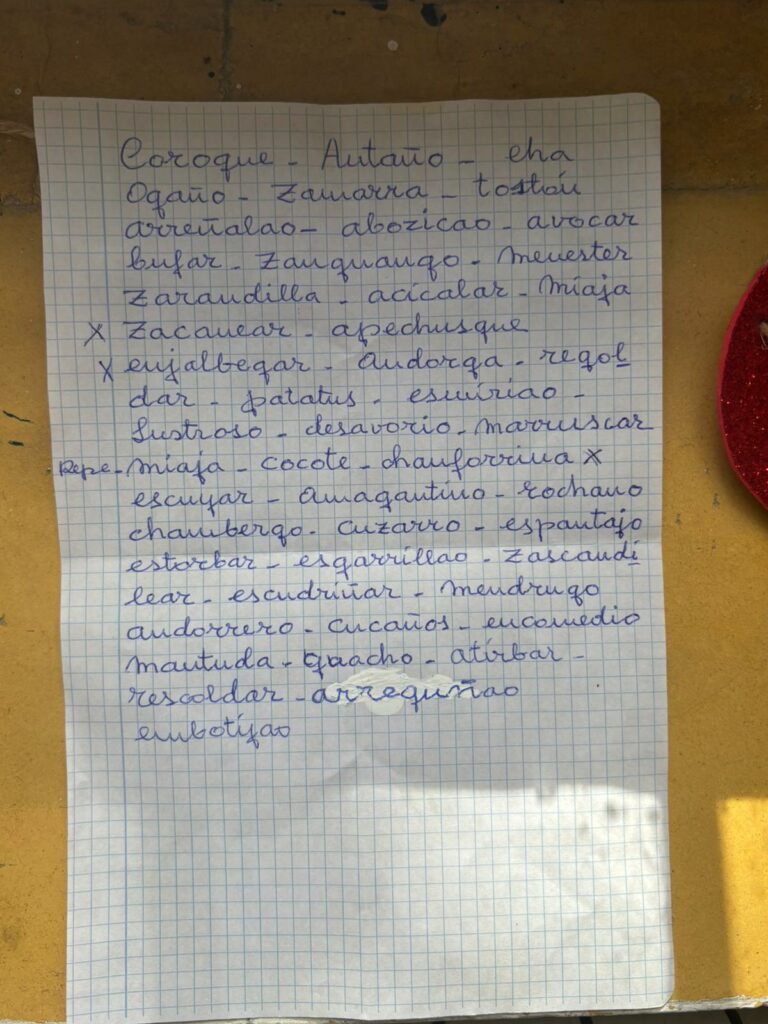 Coroque - Antaño - eha
Ogaño - Zamarra - tostón
arreñalao - abozicao - avocar
bufar - Zanguango - Menester
Zarandilla - acicalar - Miaja
X Zacanear - apechusque
X enjalbegar - andorga - regol
dar - patatus - esmiriao -
Lustroso - desavorio - Marruscar
Repe - Miaja - cocote - chanforrina X
escuyar - amagantino - rochano
chambergo - cuzarro - espantajo
estorbar - esgarrillao - Zascandi
lear - escudriñar - Mendrugo
andorrero - cucaños - encomedio
Mantuda - guacho - atirbar -
rescoldar - arreguñao
embotijao